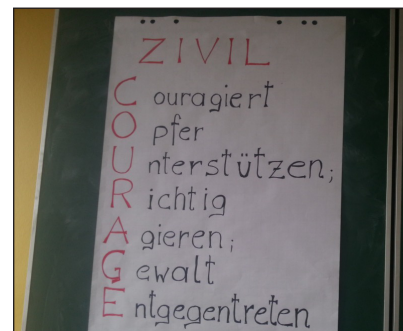 ZIVIL
Couragiert
Opfer
Unterstützen;
Richtig
Agieren;
Gewalt
Entgegentreten